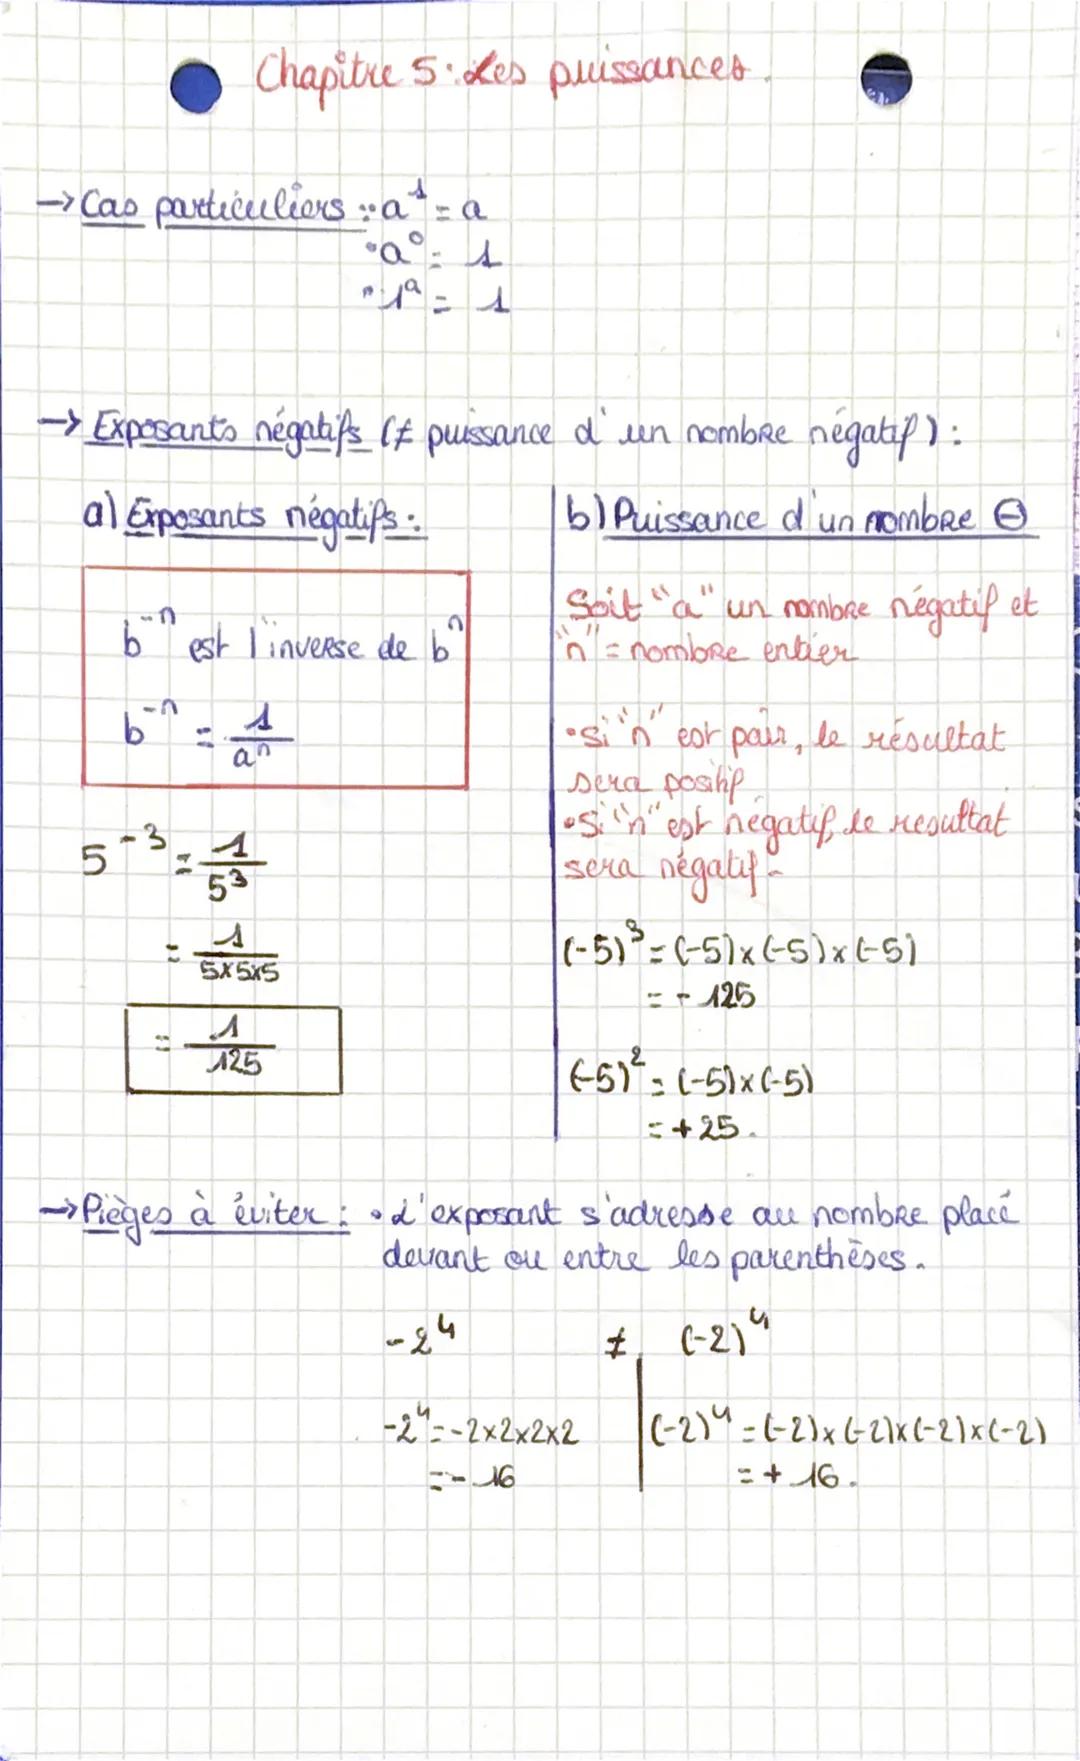 Chapitre 5: Les puissances.
→ Cas particuliers : • a¹ = a
• a⁰ = 1
• 1ᵃ = 1
→ Exposants négatifs (≠ puissance d'un nombre négatif) :
a) Exposants négatifs :
b⁻ⁿ est l'inverse de bⁿ
b⁻ⁿ = 1/aⁿ
5⁻³ = 1/5³
= 1/5×5×5
= 1/125
b) Puissance d'un nombre ⊖
Soit "a" un nombre négatif et
"n" = nombre entier
• Si "n" est pair, le résultat
sera positif
• Si "n" est négatif, le resultat
sera négatif.
(-5)³ = (-5)×(-5)×(-5)
= - 125
(-5)² = (-5)×(-5)
= + 25.
→ Pièges à éviter : • L'exposant s'adresse au nombre placé
devant ou entre les parenthèses.
-2⁴ ≠ (-2)⁴
-2⁴ = -2×2×2×2
= - 16
(-2)⁴ = (-2)×(-2)×(-2)×(-2)
= + 16.